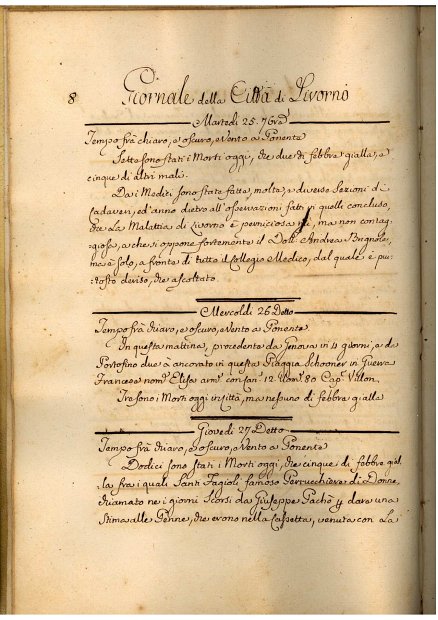 8 Giornale della Città di Livorno
Martedi 25. 9bre
Tempo frà chiaro, e oscuro, e Vento a Ponente
Sette sono stati i Morti oggi, die due di febbre gialla, e
cinque di altri mali.
Da i Medici sono state fatte, molte, e diverse Sezioni di
Cadaveri, ed'anno dietro all'osservazioni fatte in quelli concluso,
che La Malattia di Livorno è perniciosa sì, ma non contag-
giosa, a che si oppone fortemente il Dott: Andrea
mà è solo, a fronte di tutto il Collegio Medico, dal quale è piu-
tosto deriso, che ascoltato.
Mercoldi 26 Detto
Tempo frà chiaro, e oscuro, e Vento a Ponente.
In questa mattina, procedente da Genova in 4 giorni, e da
Portofino due à ancorato in questa Piaggia Schooner in Guerra
Francese nom: Elisa arm: con Can: 12. Uom: 80 Cap: Villon.
Tre sono i Morti oggi in Città, ma nessuno di febbre gialla
Giovedi 27 Detto
Tempo frà chiaro, e oscuro, e Vento a Ponente
Dodici sono stati i Morti oggi, die cinque di febbre gial-
la frà i quali Santi Fagioli, famoso Perrucchiere di Donne
chiamato ne i giorni scorsi da Giuseppe Pachò p dare una
Stima alle Penne, che erono nella Cassetta, venuta con La